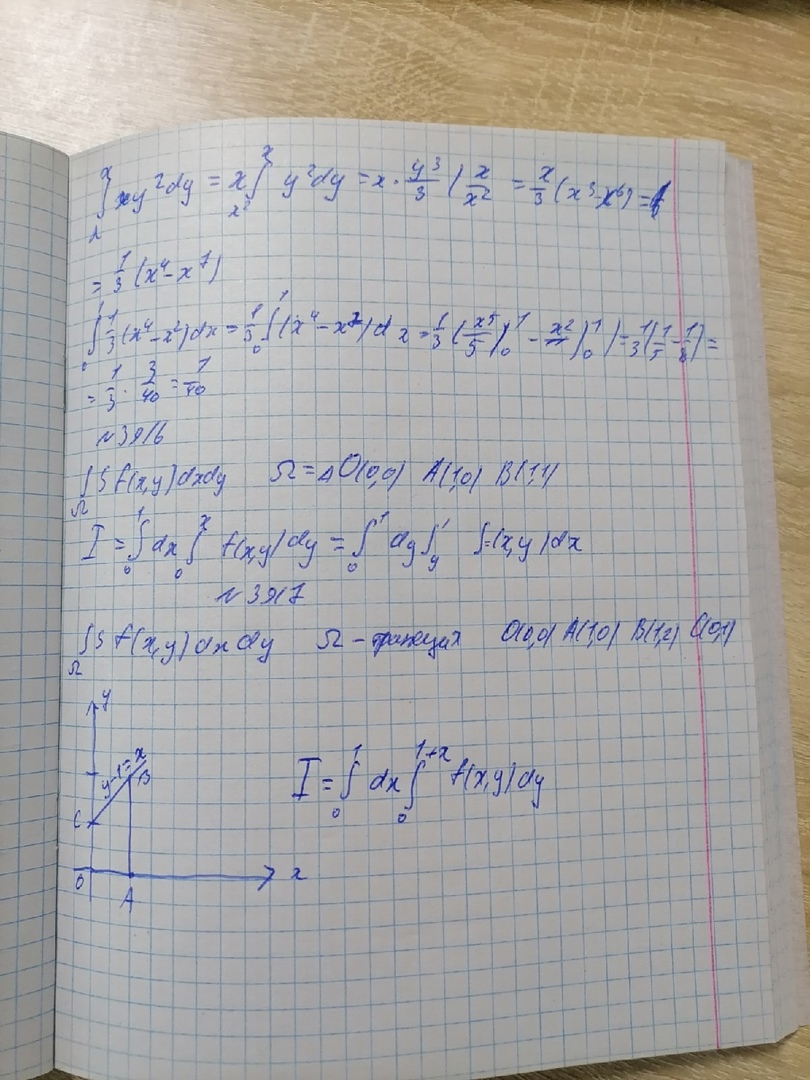 ∫_{x²}^{x} xy²dy = x∫_{x²}^{x} y²dy = x · y³/3 |_{x²}^{x} = x/3 (x³-x⁶) =
= 1/3 (x⁴-x⁷)
∫_0^1 1/3 (x⁴-x²)dx = 1/3 ∫_0^1 (x⁴-x⁷)dx = 1/3 (x⁵/5 |_0^1 - |_0^1) = 1/3 (1/5 - 1/8) =
= 1/3 · 3/40 = 1/40
№3916
∫∫_Ω f(x,y)dxdy Ω = Δ O(0,0) A(1,0) B(1,1)
I = ∫_0^1 dx ∫_0^x f(x,y)dy = ∫_0^1 dy ∫_y^1 f(x,y)dx
№3917
∫∫_Ω f(x,y)dxdy Ω - трапеция O(0,0) A(1,0) B(1,2) C(0,1)
y
y-1=x
B
I = ∫_0^1 dx ∫_0^{1+x} f(x,y)dy
C
0
x
A